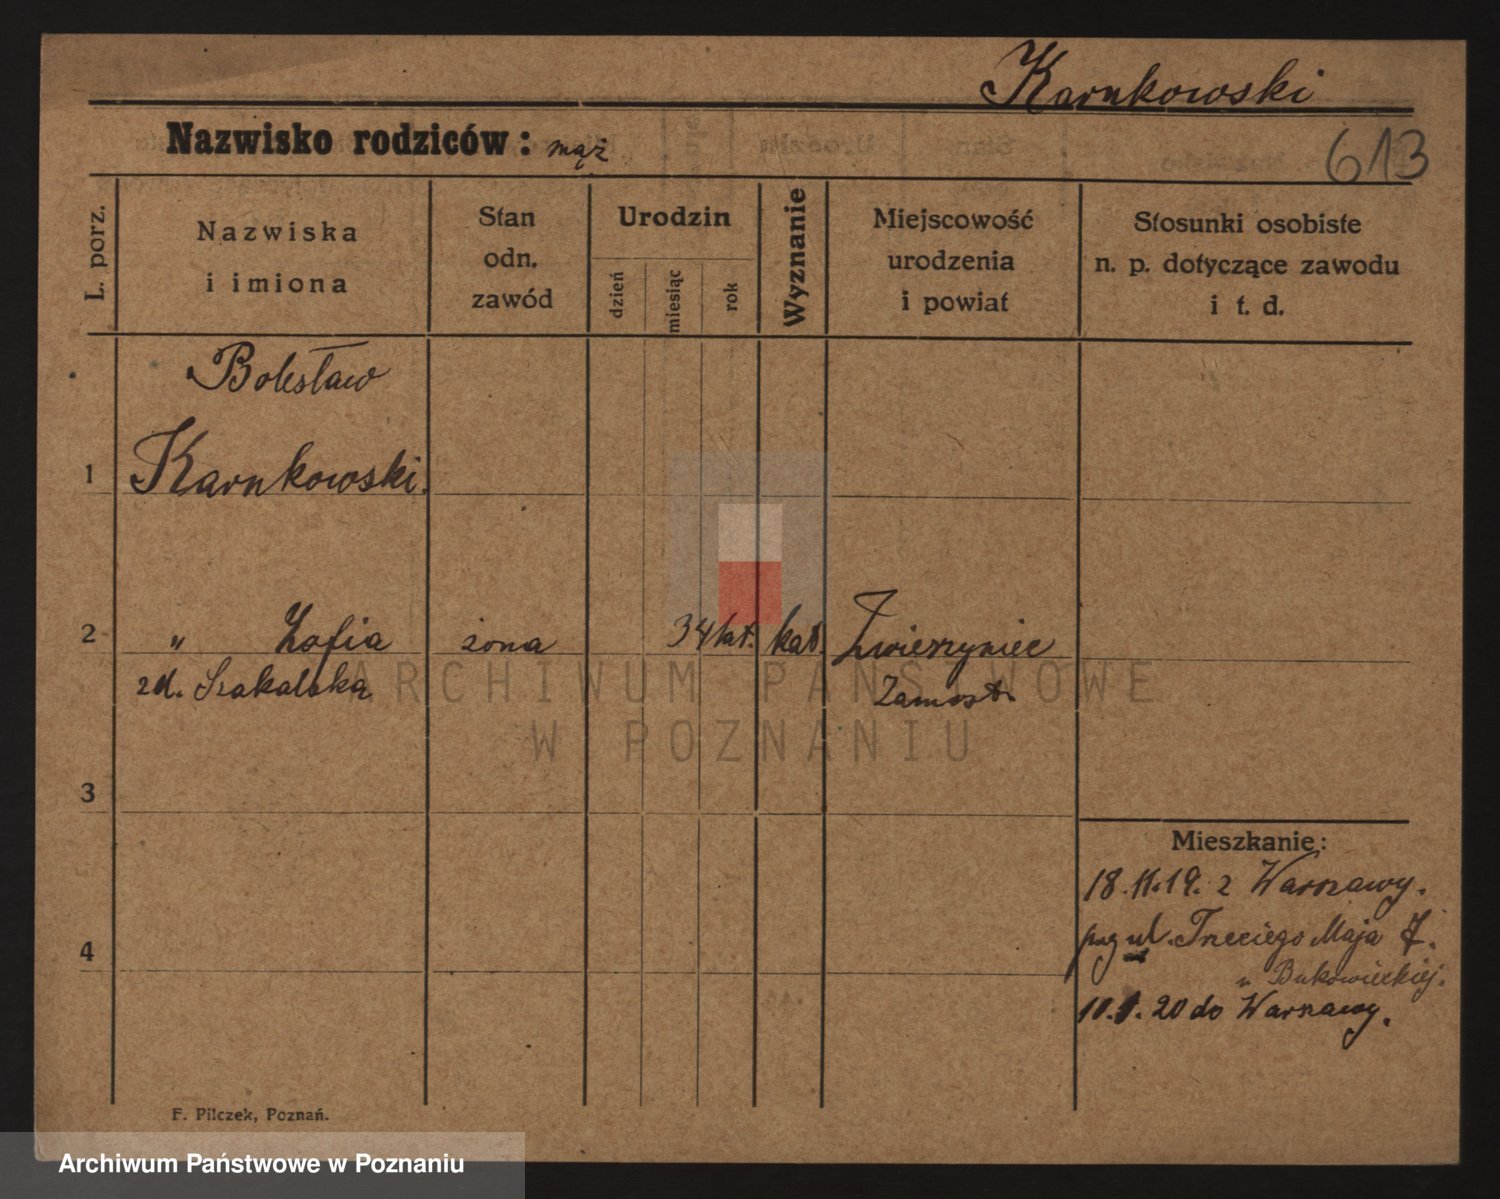 Karnkowski
Nazwisko rodziców: mąż
613
L. porz.
Nazwiska
i imiona
Stan
odn.
zawód
Urodzin
dzień
miesiąc
rok
Wyznanie
Miejscowość
urodzenia
i powiat
Stosunki osobiste
n. p. dotyczące zawodu
i t. d.
Bolesław
1 Karnkowski.
2 " Zofia żona 34 lat. kat. Zwierzyniec
zd. Szakalska Zamost.
ARCHIWUM PAŃSTWOWE
W POZNANIU
3
Mieszkanie:
18.11.19. z Warszawy.
ul. Trzeciego Maja 7.
4
u Bukowieckiej.
10.1.20 do Warszawy.
F. Pilczek, Poznań.
Archiwum Państwowe w Poznaniu